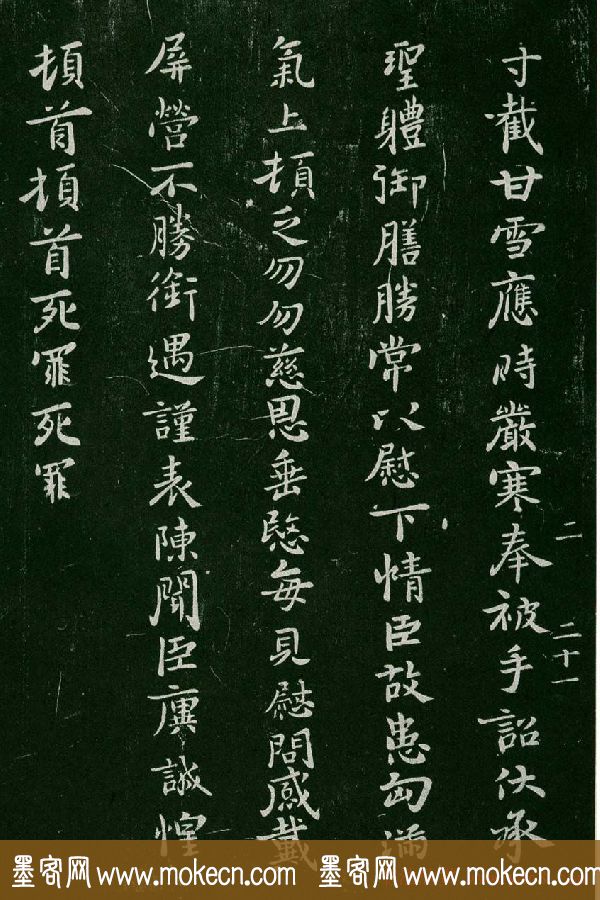 寸截甘雪應時嚴寒奉被手詔伏承
二 二十一
聖體御膳勝常以慰下情臣故患匈滿
氣上頓乏勿勿慈恩垂愍每見慰問感戴
屏營不勝銜遇謹表陳聞臣廙誠惶
頓首頓首死罪死罪
墨客网 www.mokecn.com 墨客网 www.mokecn.com